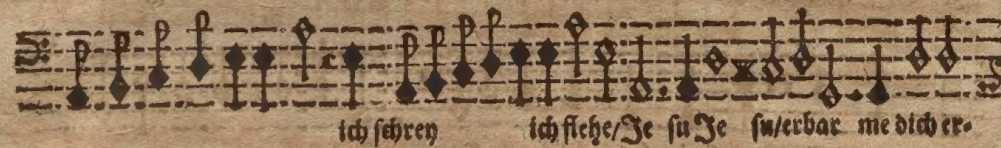 ich schrey ich flehe/Je su Je su/erbar me dich er-